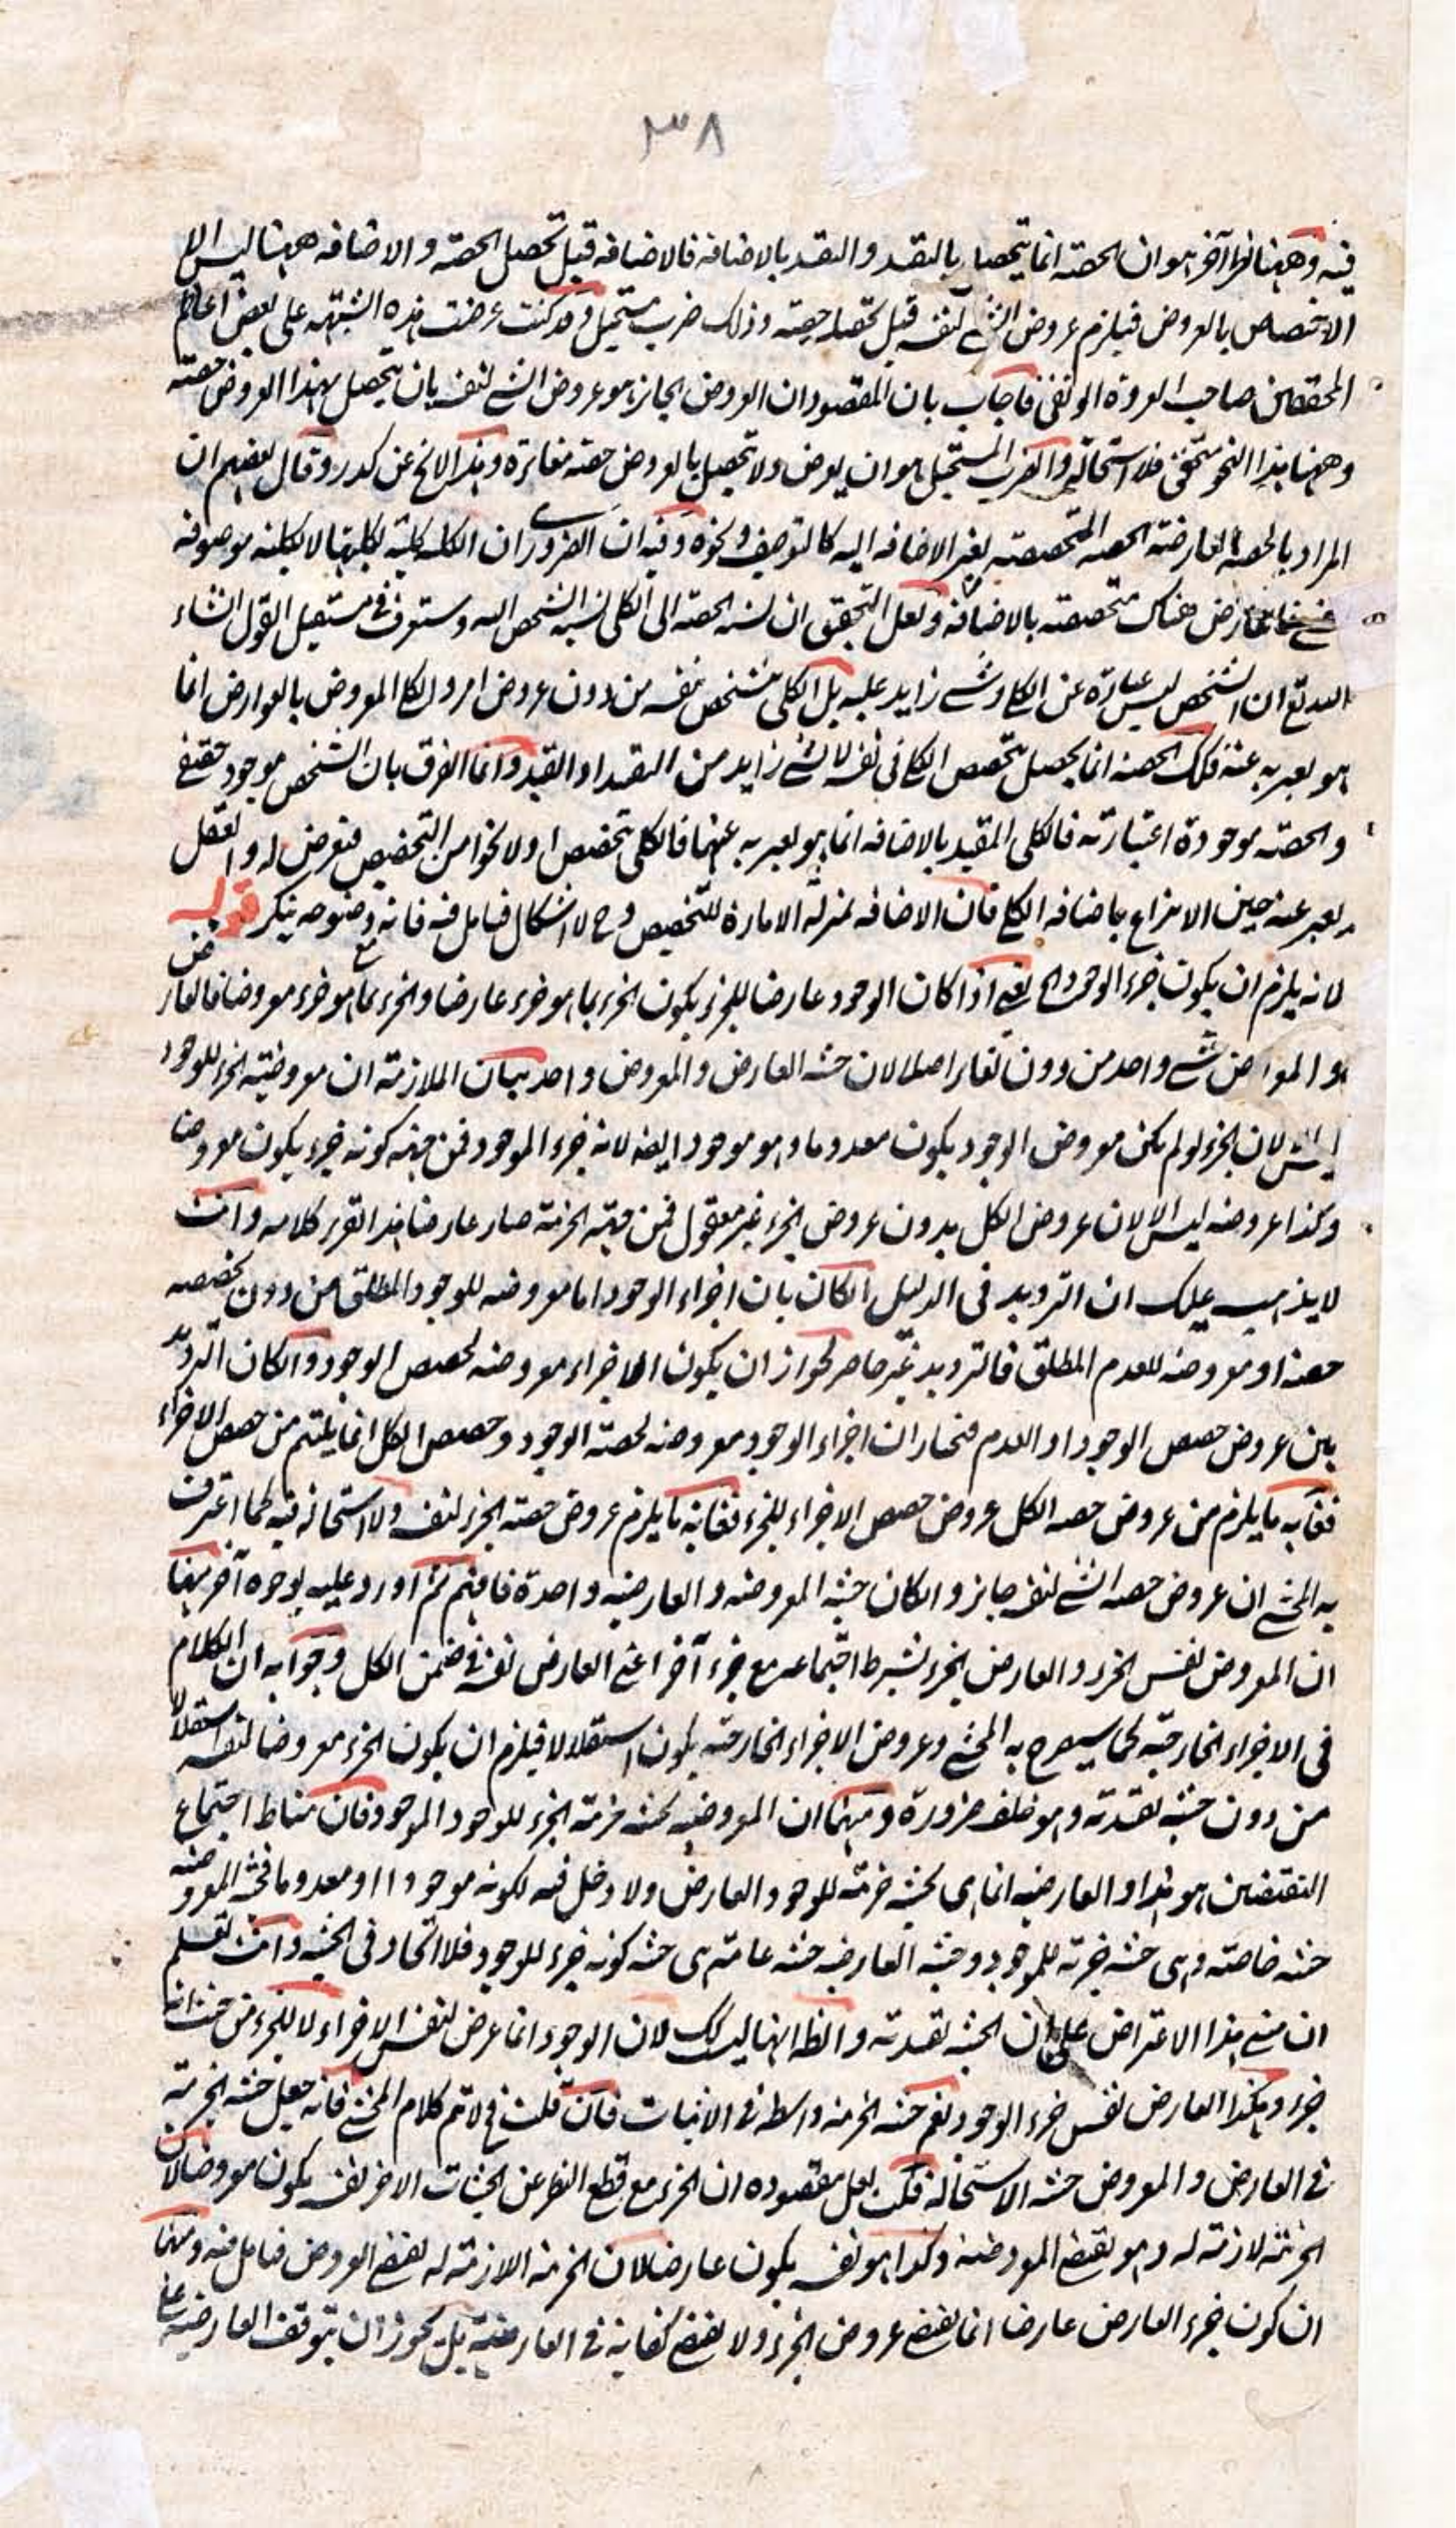 ٣٨
فيه وههنا نظر آخر هو ان الحصته انما يتحصل بالتقيد والتقيد بالاضافه فالاضافه قبل تحصل الحصته والاضافه ههنا ليس الا
الاختصاص بالعروض فيلزم عروض الشے لنفسه قبل تحصل حصته وذلك ضرب مستحيل وقد كنت عرضت هذه الشبهه على بعض اعاظم
المحققين صاحب العروة الوثقى فاجاب بان المقصود ان العروض الجائز هو عروض الشے لنفسه بان يتحصل بهذا العروض حصته
وههنا هذا النحو متحقق فلا استحالة والضرب المستحيل هو ان يعرض ولا تحصل بالعروض حصته مغائرة وهذا لا يخ عن كدر وقال بعضهم ان
المراد بالحصة العارضته الحصه المتحصصته بغير الاضافه اليه كالتوصيف ونحوه وفيه ان الضرورے ان الكل كليته لكليتها لا لكليته موصوفه
فالعارض هناك متحصصته بالاضافه ولعل التحقيق ان نسبة الحصته الى الكلى نسبة الشخص اليه وستعرف فى مستقبل القول انشاء
الله تع ان الشخص ليس عبارة عن الكلے وشے زايد عليه بل الكلى متشخص بنفسه من دون عروض امر والكلے المعروض بالعوارض انما
هو يعبر به عنه فكذلك الحصته انما يحصل بتحصص الكلے فى نفسه لا بشے زايد من التقيد او القيد وانما الفرق بان الشخص موجود حقيقى
والحصته موجودة اعتبارية فالكلى المقيد بالاضافه انما هو يعبر به عنها فالكلى تحصص اولا نحوا من التخصيص فتعرض له والعقل
يعبر عنه حين الانتزاع باضافه الكلے فان الاضافه بمنزلة الامارة للتخصيص وح لا اشكال فتامل فيه فانه وضوحه ينكر قوله
لانه يلزم ان يكون جزء الوجود الخ يعنى اذا كان الوجود عارضا للجزء يكون الجزء بما هو جزء عارضا والجزء بما هو جزء معروضا فالعارض
هو المعروض شے واحد من دون تغاير اصلا لان حيثية العارض والمعروض واحد بيان الملازمة ان معروضية الجزء للوجود
ليس الا لان الجزء لو لم يكن معروض الوجود يكون معدوما وهو موجود ايضه لانه جزء الموجود فمن جهته كونه جزء يكون معروضا
وكذا عروضه ليس الا لان عروض الكل بدون عروض الجزء غير معقول فمن جهته الجزئية صار عارضا هذا تقرير كلامه وانت
لا يذهب عليك ان الترديد فى الدليل ان كان بان اجزاء الوجود اما معروضه للوجود المطلق من دون تخصصه
حصة او معروضه للعدم المطلق فالترديد غير حاصر لجواز ان يكون الاجزاء معروضه لحصص الوجود وان كان الترديد
بين عروض حصص الوجود او العدم فنختار ان اجزاء الوجود معروضه لحصته الوجود وحصص الكل انما يلتئم من حصص الاجزاء
فغاية ما يلزم من عروض حصه الكل عروض حصص الاجزاء للجزء فغاية ما يلزم عروض حصته الجزء لنفسه ولا استحالة فيه لما اعترف
به المحشے ان عروض حصه الشے لنفسه جايز وان كان حيثية المعروضه والعارضيه واحدة فافهم ثم اورد عليه بوجوه آخر منها
ان المعروض نفس الجزء والعارض الجزء بشرط اجتماعه مع جزء آخر اعنے العارض نفسه فى ضمن الكل وجوابه ان الكلام
فى الاجزاء الخارجية كما سيصرح به المحشے وعروض الاجزاء الخارجيه يكون استقلالا فيلزم ان يكون الجزء معروضا لنفسه استقلالا
من دون حيثية تقيدية وهو خلف ضرورة ومنها ان المعروضيه بحيثه جزئية الجزء للوجود الموجود فان مناط اجتماع
النقيضين هو هذا والعارضيه انما هى بحيثه جزئية للوجود العارض ولا دخل فيه لكونه موجودا او معدوما فحيثية المعروضيه
حيثية خاصته وهى حيثية جزئية للموجود وحيثية العارضيه حيثية عامته هى حيثية كونه جزء للوجود فلا اتحاد فى الحيثية وانت تعلم
ان مبنى هذا الاعتراض على ان الحيثية تقيدية والظ انها ليس كك لان الوجود انما عرض لنفس الاجزاء لا للجزء من حيث انه
جزء وهكذا العارض نفس جزء الوجود نعم حيثية الجزئية واسطة فى الاثبات فان قلت فح لا يتم كلام المحشے فانه جعل حيثية الجزئية
فى العارض والمعروض حيثية الاستحالة قلت لعل مقصوده ان الجزء مع قطع النظر عن الحيثيات الاخر بنفسه يكون معروضا لان
الجزئية لازمته له وهو يقتضے المعروضية وكذا هو نفسه يكون عارضا لان الجزئية اللازمته له يقتضے العروض فتامل فيه ومنها
ان كون جزء العارض عارضا انما يقتضے عروض الجزء ولا يقتضے كفاية فى العارضية بل يجوز ان يتوقف العارضيه على